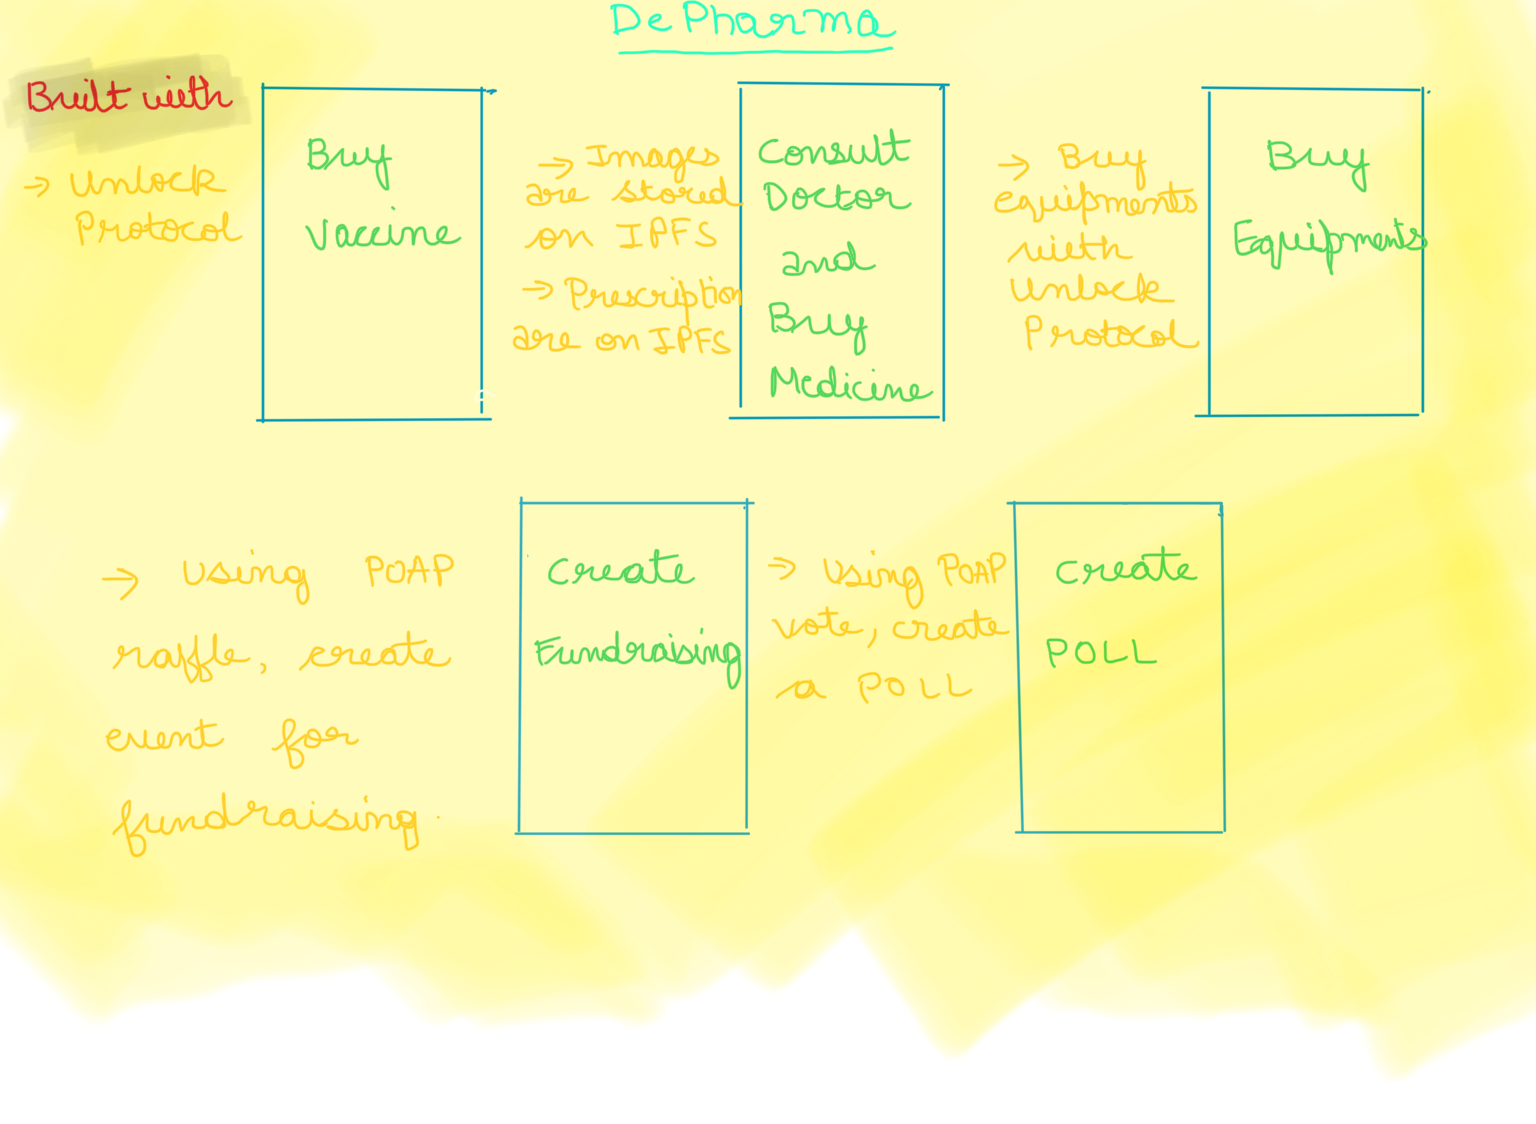 DePharma
Built with
→ Unlock
Protocol
Buy
Vaccine
→ Images
are stored
on IPFS
→ Prescription
are on IPFS
Consult
Doctor
and
Buy
Medicine
→ Buy
equipments
with
Unlock
Protocol
Buy
Equipments
→ Using POAP
raffle, create
event for
fundraising.
Create
Fundraising
→ Using POAP
vote, create
a POLL
Create
POLL